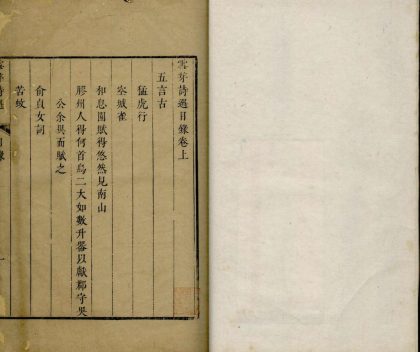 雲芽詩選目錄卷上
五言古
猛虎行
空城雀
和息園賦得悠然見南山
膠州人得何首烏二大如數升器以獻郡守吳
公余異而賦之
俞貞女詞
苦蚊